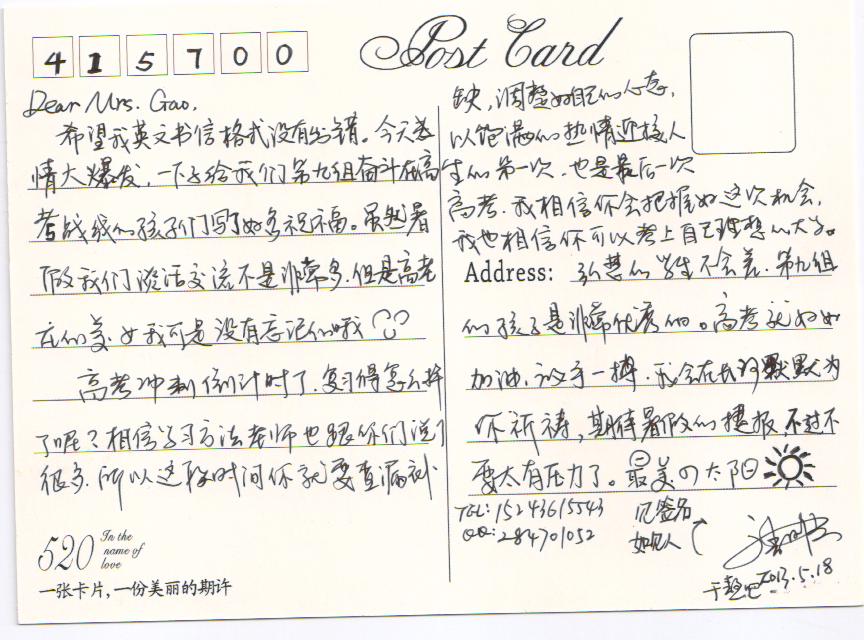 415700
Post Card
Dear Mrs. Gao,
希望我英文书信格式没有出错。今天感
情大爆发,一下子给我们第九组奋斗在高
考战线的孩子们写了好多祝福。虽然暑
假我们谈话交流不是非常多,但是高老
我可是没有忘记你哦
高考冲刺倒计时了,复习得怎么样
了呢?相信学习方法老师也跟你们说了
很多,所以这段时间你就要查漏补
缺,调整好自己的心态,
以饱满的热情迎接人
生的第一次,也是最后一次
高考。我相信你会把握好这次机会,
我也相信你可以考上自己理想的大学。
Address: 的学生不会差,第九组
的孩子是非常优秀的。高考就好好
加油,一搏,我会在默默为
你祈祷,期待暑假的捷报,不过不
要太有压力了。最美の太阳
TEL: 15243615543
QQ: 284701052
见签名
如见人
2013.5.18
520
In the
name of
love
一张卡片,一份美丽的期许